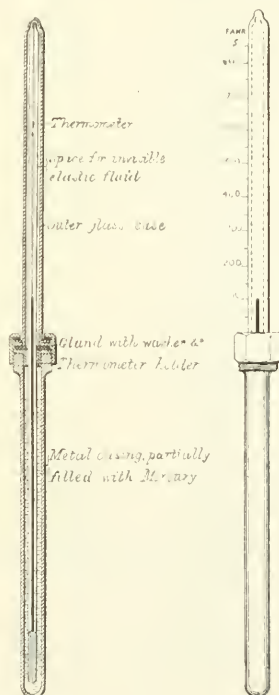 Thermometer
for invisible
elastic fluid
outer glass case
Gland with washer &c
Thermometer holder
Metal casing, partially
filled with Mercury
FAHR
400
200